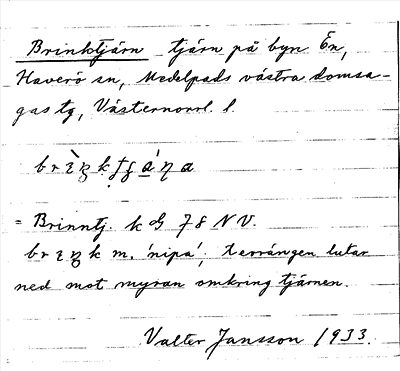 Brinktjärn tjärn på byn Én,
Haverö sn, Medelpads västra domsa-
gas tg, Västernorrl. l.
= Brinntj. k G 78 NV.
m. 'nipa'; terrängen lutar
ned mot myran omkring tjärnen.
Valter Jansson 1933.